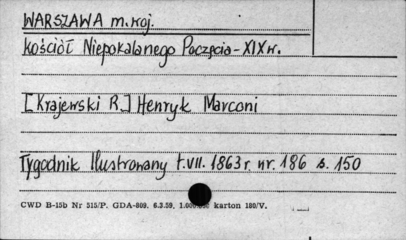 WARSZAWA m. woj.
Kościół Niepokalanego Poczęcia - XIX w.
[Krajewski R.] Henryk Marconi
Tygodnik Ilustrowany t.VII. 1863 r. nr. 186 s. 150
CWD B-15b Nr 515/P. GDA-809. 6.3.59, karton 180/V.